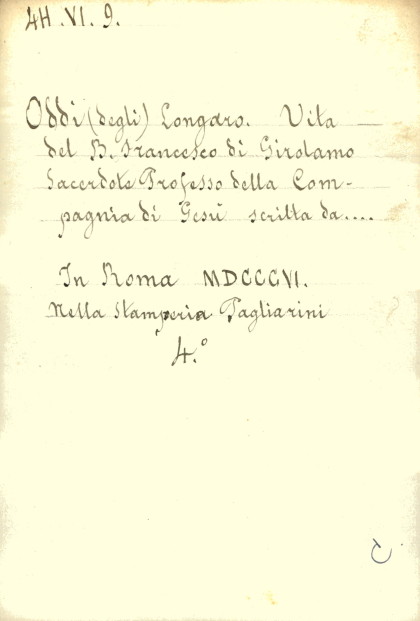 4H.VI.9.
Oddi (degli) Longaro. Vita
del B. Francesco di Girolamo
Sacerdote Professo della Com-
pagnia di Gesù scritta da....
In Roma MDCCCVI.
Nella Stamperia Pagliarini
4.°